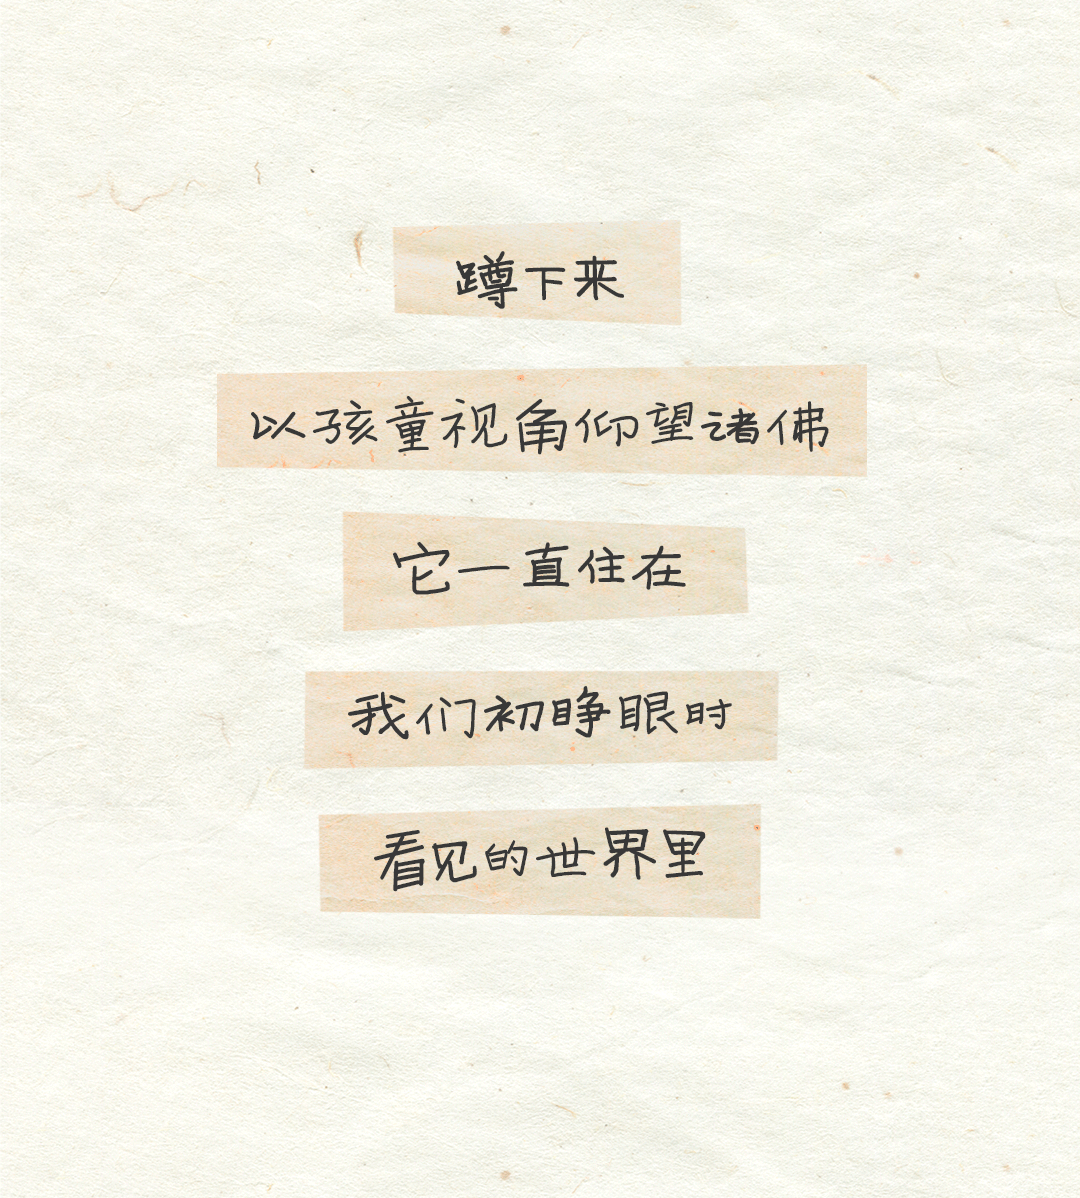 蹲下来
以孩童视角仰望诸佛
它一直住在
我们初睁眼时
看见的世界里